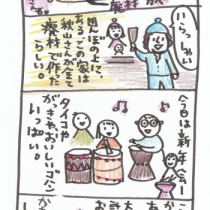 廃材
いらっしゃい
田んぼの上に、
ある この家は
秋山さんが全て
廃材で作った
らしい。
今日は新年会！
タイコや
がっきやおいしいゴハン
いっぱい。